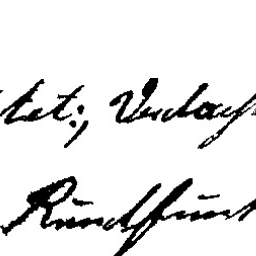 tet:, Verdach
Rundfunk